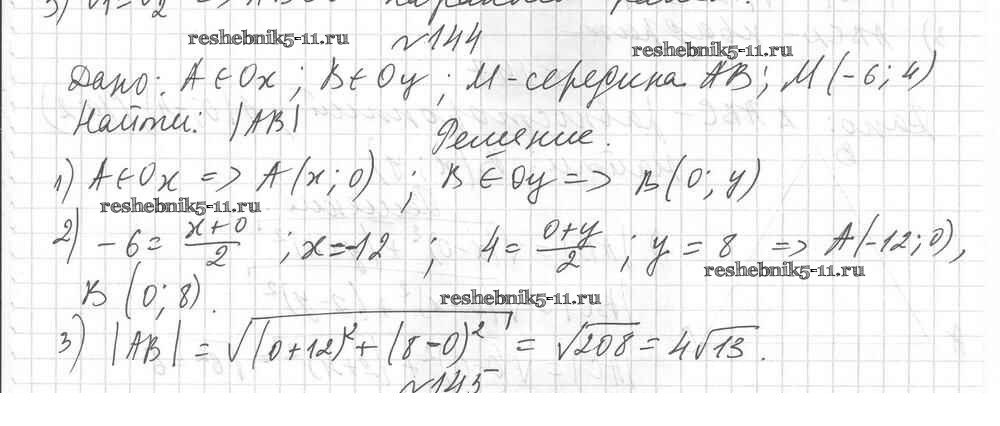 3) v1=v2 => AB
reshebnik5-11.ru
№144
reshebnik5-11.ru
Дано: A∈Ox; B∈Oy; M-середина AB; M(-6; 4)
Найти: |AB|
Решение.
1) A∈Ox => A(x; 0) ; B∈Oy => B(0; y)
reshebnik5-11.ru
2) -6 = (x+0)/2 ; x=-12 ; 4 = (0+y)/2 ; y = 8 => A(-12; 0),
reshebnik5-11.ru
B (0; 8).
reshebnik5-11.ru
3) |AB| = √((0+12)²+(8-0)²) = √208 = 4√13.
№145